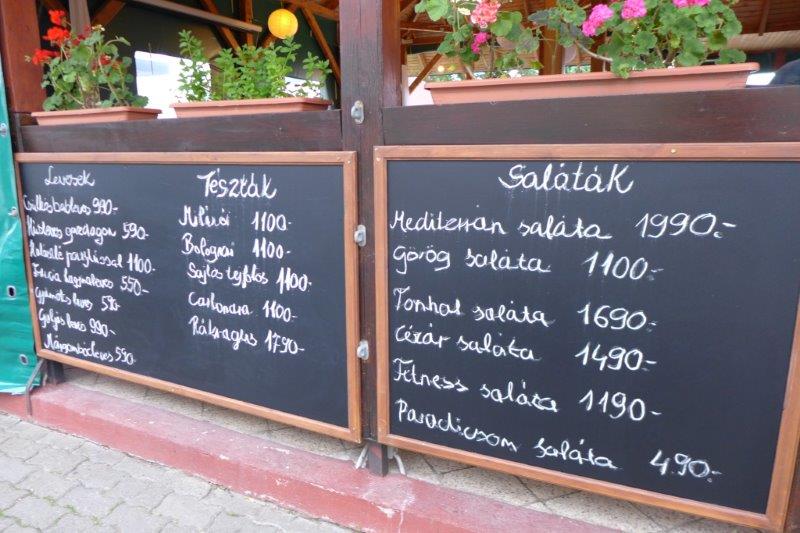 Levesek
Csülkös bableves 990.-
Húsleves gazdagon 590.-
Halászlé pontyhússal 1100.-
Francia hagymaleves 550.-
Gyümölcsleves 590.-
Gulyás leves 990.-
590.-
Tészták
Milánói 1100.-
Bolognai 1100.-
Sajtos tejfölös 1100.-
Carbonara 1100.-
Rákragus 1790.-
Saláták
Mediterrán saláta 1990.-
Görög saláta 1100.-
Tonhal saláta 1690.-
Cézár saláta 1490.-
Fitness saláta 1190.-
Paradicsom saláta 490.-